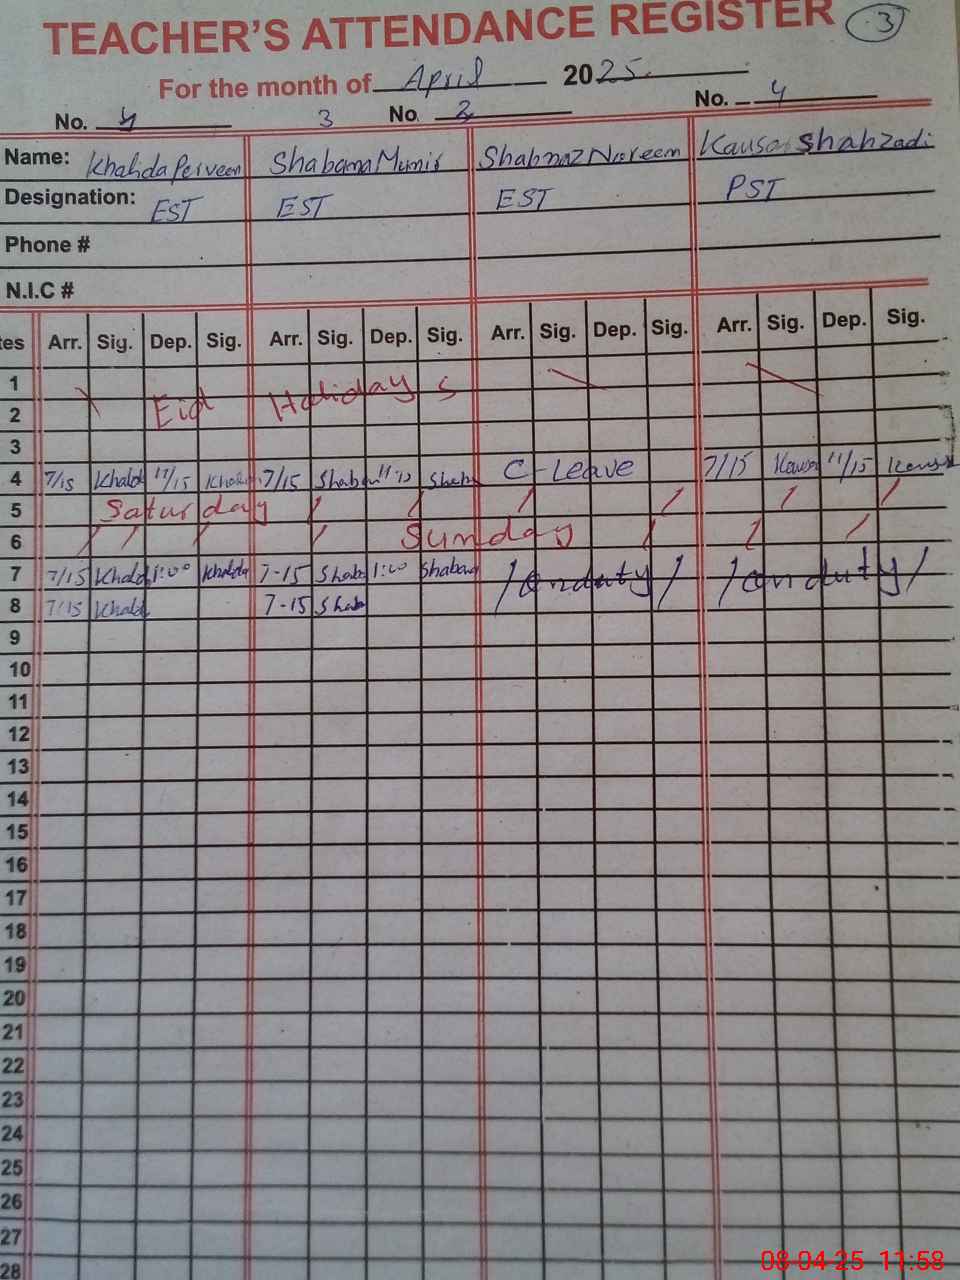 TEACHER'S ATTENDANCE REGISTER 3
For the month of April 2025
No. 3 No. No. 4
Name: Khalida Perveen Shabana Munir Shabnaz Noreen Kausar Shahzadi
Designation: EST EST EST PST
Phone #
N.I.C #
tes Arr. Sig. Dep. Sig. Arr. Sig. Dep. Sig. Arr. Sig. Dep. Sig. Arr. Sig. Dep. Sig.
1
2 Eid Holidays
3
4 7/15 Khalid 11/15 7/15 Shaban 11:15 Shab C-Leave 7/15 Kausa 11/15 Kausa
5 Saturday
6 Sunday
7 7/15 Khalid 1:00 Khalida 7-15 Shaba 1:00 Shabana /onduty/ /onduty/
8 7/15 Khalid 7-15 Shab
9
10
11
12
13
14
15
16
17
18
19
20
21
22
23
24
25
26
27
28
08-04-25 11:58